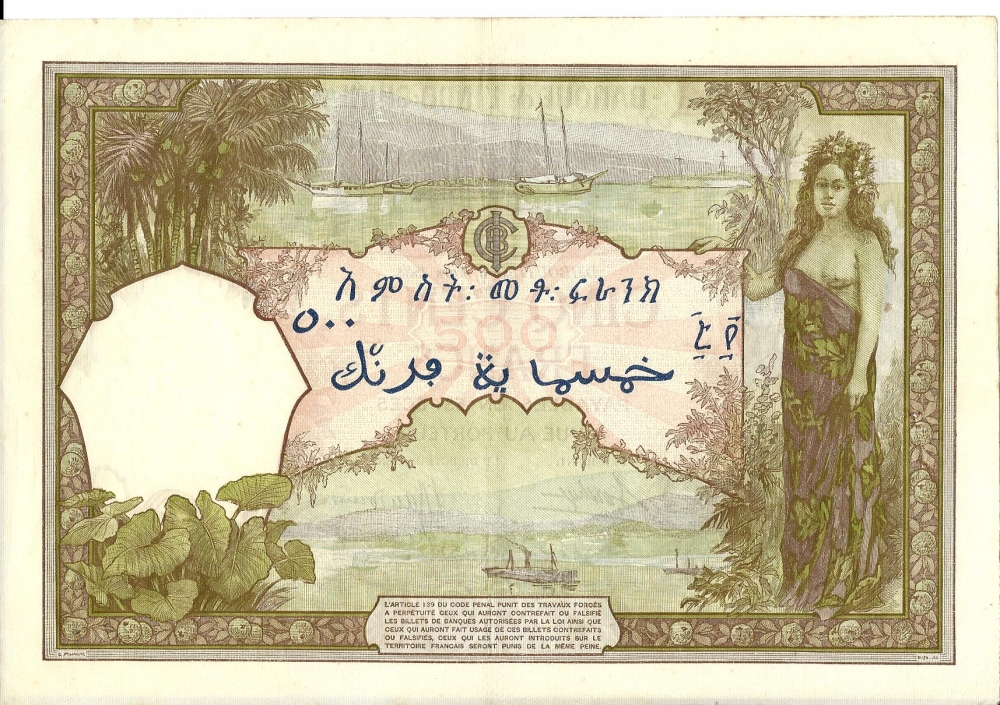 አምስት፡ መቶ፡ ፍራንክ
٥٠٠
፭ ፻
خمسماية فرنك
500
L'ARTICLE 139 DU CODE PÉNAL PUNIT DES TRAVAUX FORCÉS
A PERPÉTUITÉ CEUX QUI AURONT CONTREFAIT OU FALSIFIÉ
LES BILLETS DE BANQUES AUTORISÉES PAR LA LOI AINSI QUE
CEUX QUI AURONT FAIT USAGE DE CES BILLETS CONTREFAITS
OU FALSIFIÉS, CEUX QUI LES AURONT INTRODUITS SUR LE
TERRITOIRE FRANÇAIS SERONT PUNIS DE LA MÊME PEINE.